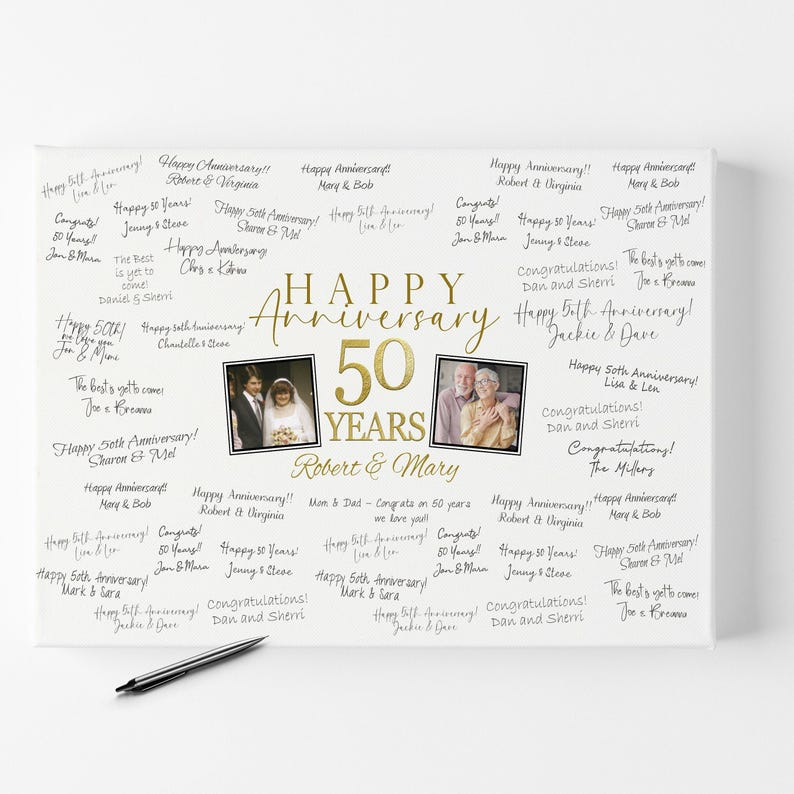 Happy 50th Anniversary!
Lisa & Len
Happy Anniversary!!
Robert & Virginia
Happy Anniversary!!
Mary & Bob
Happy Anniversary!!
Robert & Virginia
Happy Anniversary!!
Mary & Bob
Congrats!
50 Years!!
Jon & Mara
Happy 50 Years!
Jenny & Steve
Happy 50th Anniversary!
Sharon & Me!
Happy 50th Anniversary!
Lisa & Len
Congrats!
50 Years!!
Jon & Mara
Happy 50 Years!
Jenny & Steve
Happy 50th Anniversary!
Sharon & Me!
The Best
is yet to
come!
Daniel & Sherri
Happy Anniversary!
Chris & Katrina
Congratulations!
Dan and Sherri
The best is yet to come!
Joe & Breanna
HAPPY
Anniversary
50
YEARS
Robert & Mary
Happy 50th!
we love you
Jon & Mimi
Happy 50th Anniversary!
Chantelle & Steve
Happy 50th Anniversary!
Jackie & Dave
The best is yet to come!
Joe & Breanna
Happy 50th Anniversary!
Lisa & Len
Congratulations!
Dan and Sherri
Happy 50th Anniversary!
Sharon & Me!
Congratulations!
The Millers
Happy Anniversary!!
Mary & Bob
Happy Anniversary!!
Robert & Virginia
Mom & Dad – Congrats on 50 years
we love you!!
Happy Anniversary!!
Robert & Virginia
Happy Anniversary!!
Mary & Bob
Happy 50th Anniversary!
Lisa & Len
Congrats!
50 Years!!
Jon & Mara
Happy 50 Years!
Jenny & Steve
Happy 50th Anniversary!
Lisa & Len
Congrats!
50 Years!!
Jon & Mara
Happy 50 Years!
Jenny & Steve
Happy 50th Anniversary!
Sharon & Me!
Happy 50th Anniversary!
Mark & Sara
Happy 50th Anniversary!
Mark & Sara
The best is yet to come!
Joe & Breanna
Happy 50th Anniversary!
Jackie & Dave
Congratulations!
Dan and Sherri
Happy 50th Anniversary!
Jackie & Dave
Congratulations!
Dan and Sherri